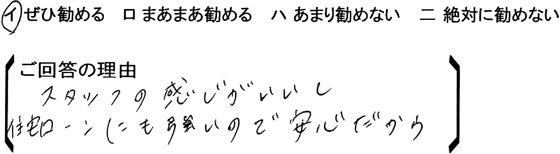 イ ぜひ勧める ロ まあまあ勧める ハ あまり勧めない ニ 絶対に勧めない
ご回答の理由
スタッフの感じがいいし
住宅ローンにも強いので安心だから